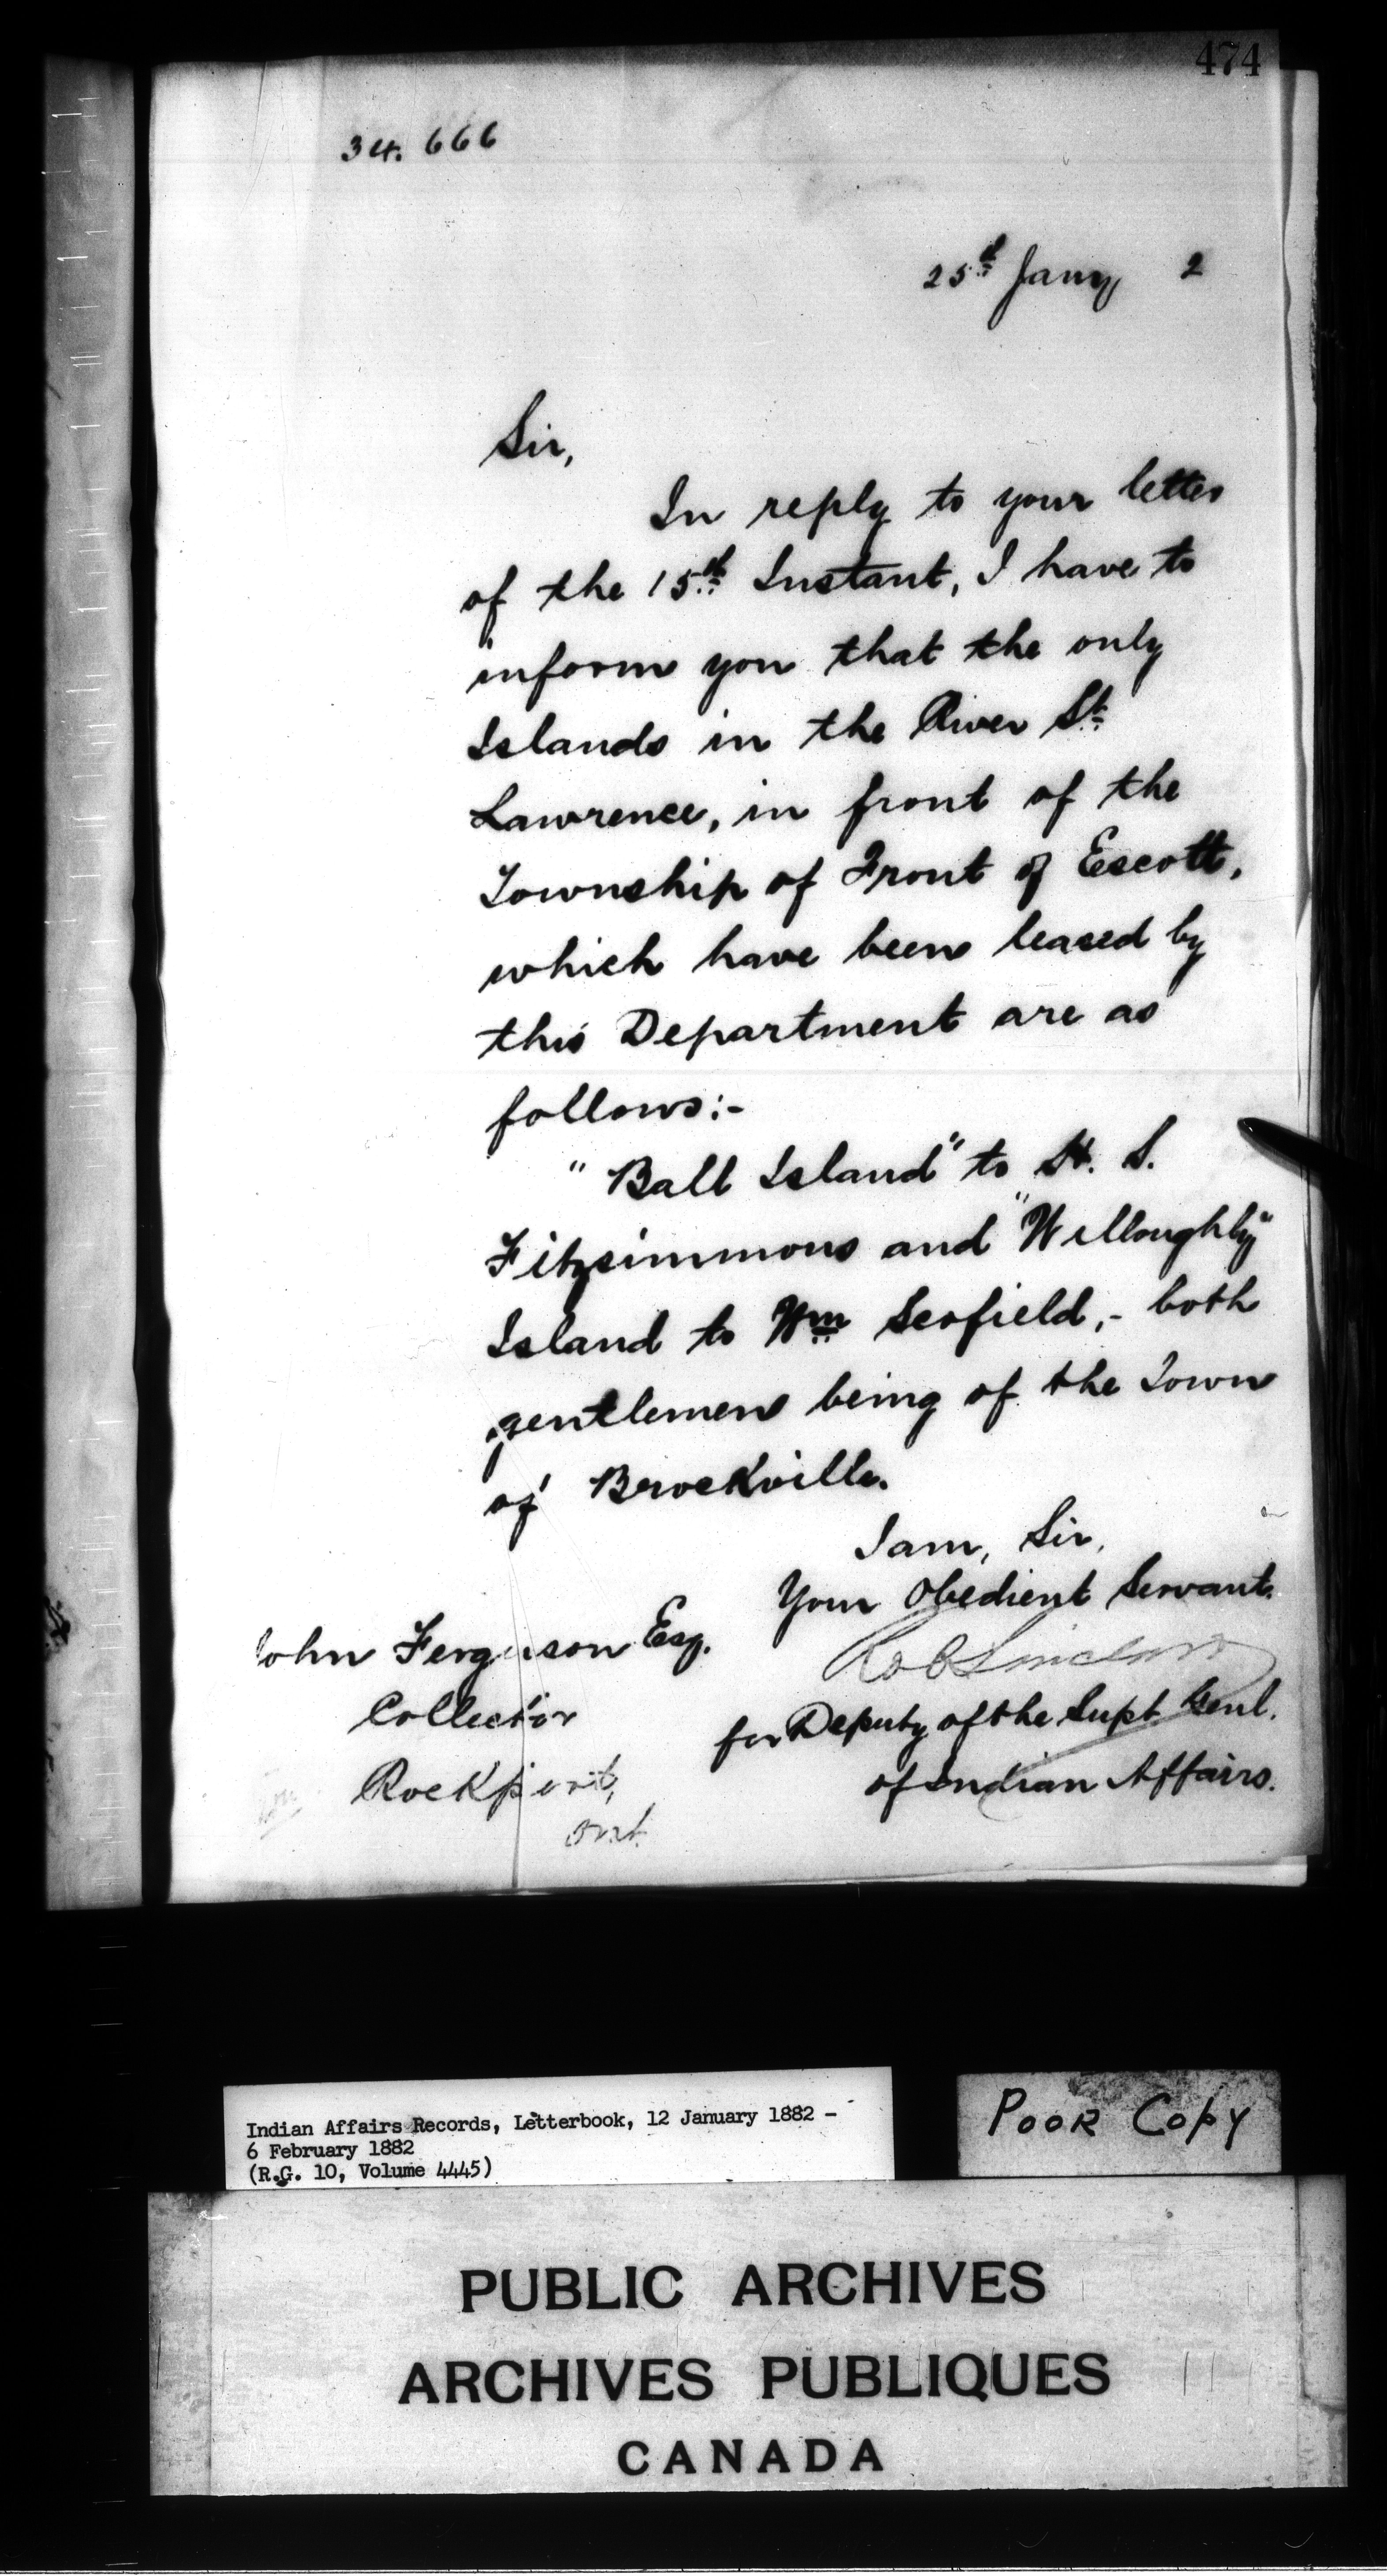 474
34.666
25th Jany 2
Sir,
In reply to your letter
of the 15th Instant, I have to
inform you that the only
Islands in the River St.
Lawrence, in front of the
Township of Front of Escott,
which have been leased by
this Department are as
follows:-
"Ball Island" to H. S.
Fitzsimmons and "Willoughby"
Island to Wm Scofield,- both
gentlemen being of the Town
of Brockville.
I am, Sir,
Your Obedient Servant.
Rob Sinclair
for Deputy of the Supt. Genl.
of Indian Affairs.
John Ferguson Esq.
Collector
Rockport,
Ont.
Indian Affairs Records, Letterbook, 12 January 1882 -
6 February 1882
(R.G. 10, Volume 4445)
POOR COPY
PUBLIC ARCHIVES
ARCHIVES PUBLIQUES
CANADA